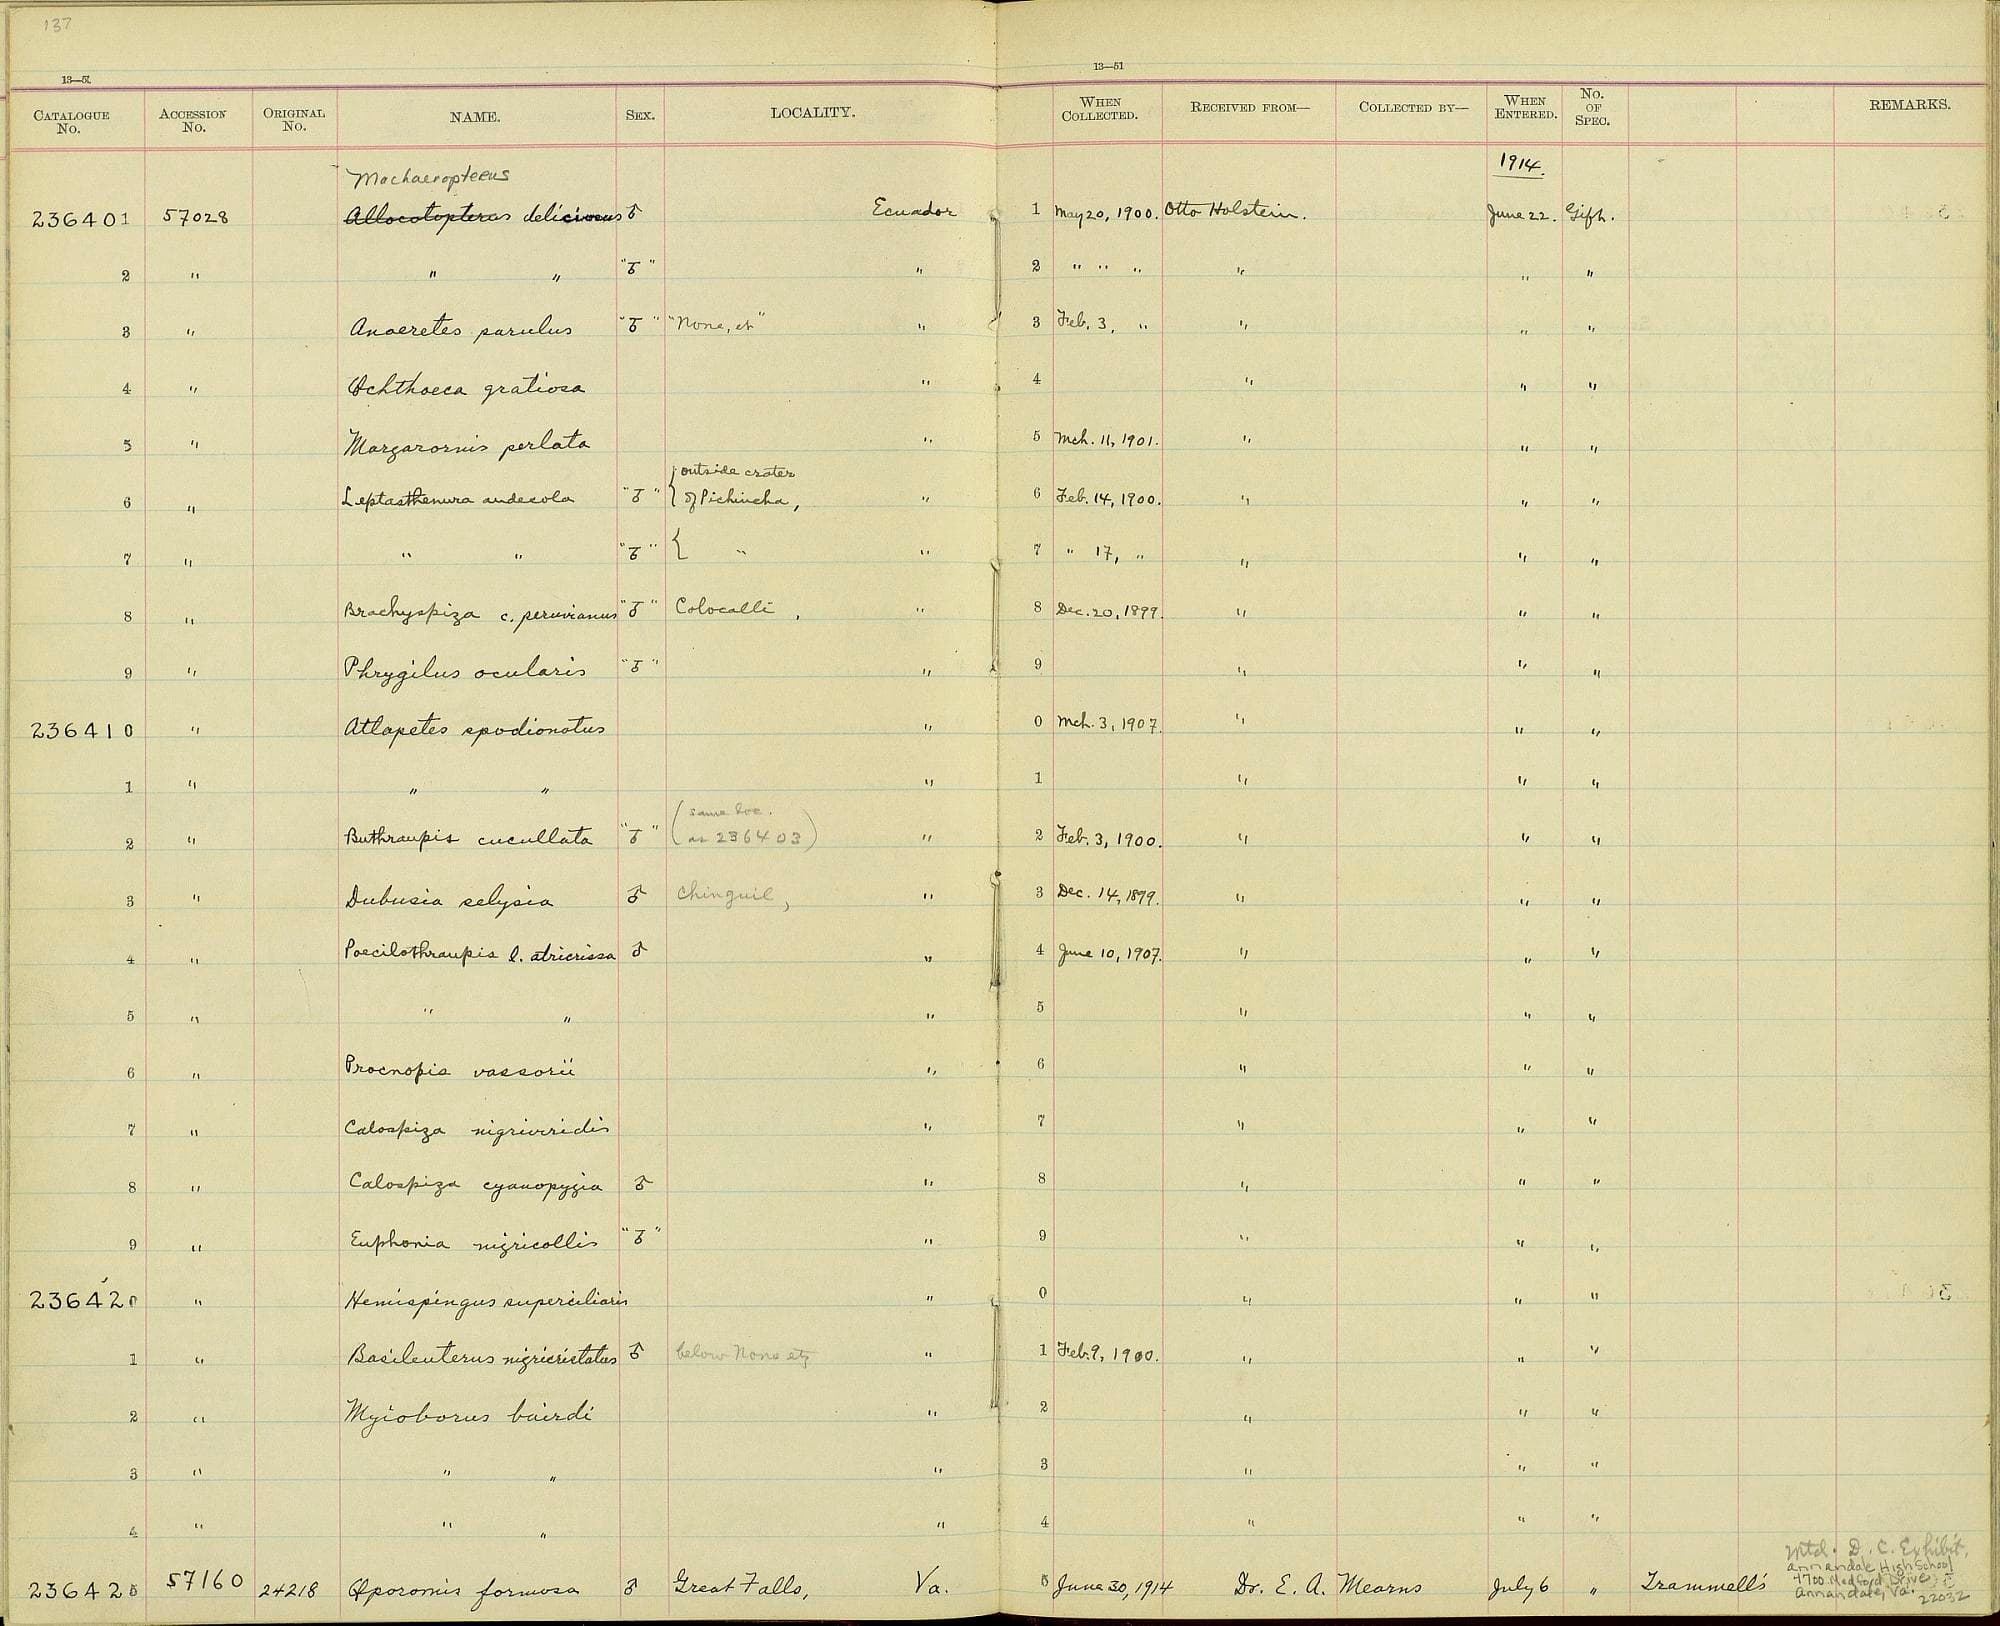 137
13—51
13—51
CATALOGUE No. ACCESSION No. ORIGINAL No. NAME. SEX. LOCALITY. WHEN COLLECTED. RECEIVED FROM— COLLECTED BY— WHEN ENTERED. No. OF SPEC. REMARKS.
1914.
Machaeropterus
236401 57028 Allocotopterus deliciosus ♂ Ecuador 1 May 20, 1900. Otto Holstein. June 22. Gift.
2 " " " "♂" " 2 " " " " " "
3 " Anaeretes parulus "♂" "None, etc" " 3 Feb. 3, " " " "
4 " Ochthoeca gratiosa " 4 " " "
5 " Margarornis perlata " 5 Mch. 11, 1901. " " "
outside crater
6 " Leptasthenura andecola "♂" of Pichincha, " 6 Feb. 14, 1900. " " "
7 " " " "♂" " " 7 " 17, " " " "
8 " Brachyspiza c. peruvianus "♂" Colocalli, " 8 Dec. 20, 1899. " " "
9 " Phrygilus ocularis "♂" " 9 " " "
236410 " Atlapetes spodionotus " 0 Mch. 3, 1907. " " "
1 " " " " 1 " " "
(same loc.
2 " Buthraupis cucullata "♂" as 236403) " 2 Feb. 3, 1900. " " "
3 " Dubusia selysia ♂ Chinguil, " 3 Dec. 14, 1899. " " "
4 " Poecilothraupis l. atricrissa ♂ " 4 June 10, 1907. " " "
5 " " " " 5 " " "
6 " Procnopis vassorii " 6 " " "
7 " Calospiza nigriviridis " 7 " " "
8 " Calospiza cyanopygia ♂ " 8 " " "
9 " Euphonia nigricollis "♂" " 9 " " "
236420 " Hemispingus superciliaris " 0 " " "
1 " Basileuterus nigricristatus ♂ below None etc " 1 Feb. 9, 1900. " " "
2 " Myioborus bairdi " 2 " " "
3 " " " " 3 " " "
4 " " " " 4 " " "
236425 57160 24218 Oporornis formosa ♂ Great Falls, Va. 5 June 30, 1914 Dr. E. A. Mearns July 6 " Trammell's
Mtd. D.C. Exhibit,
Annandale High School
4700 Medford Drive
Annandale, Va.
22032